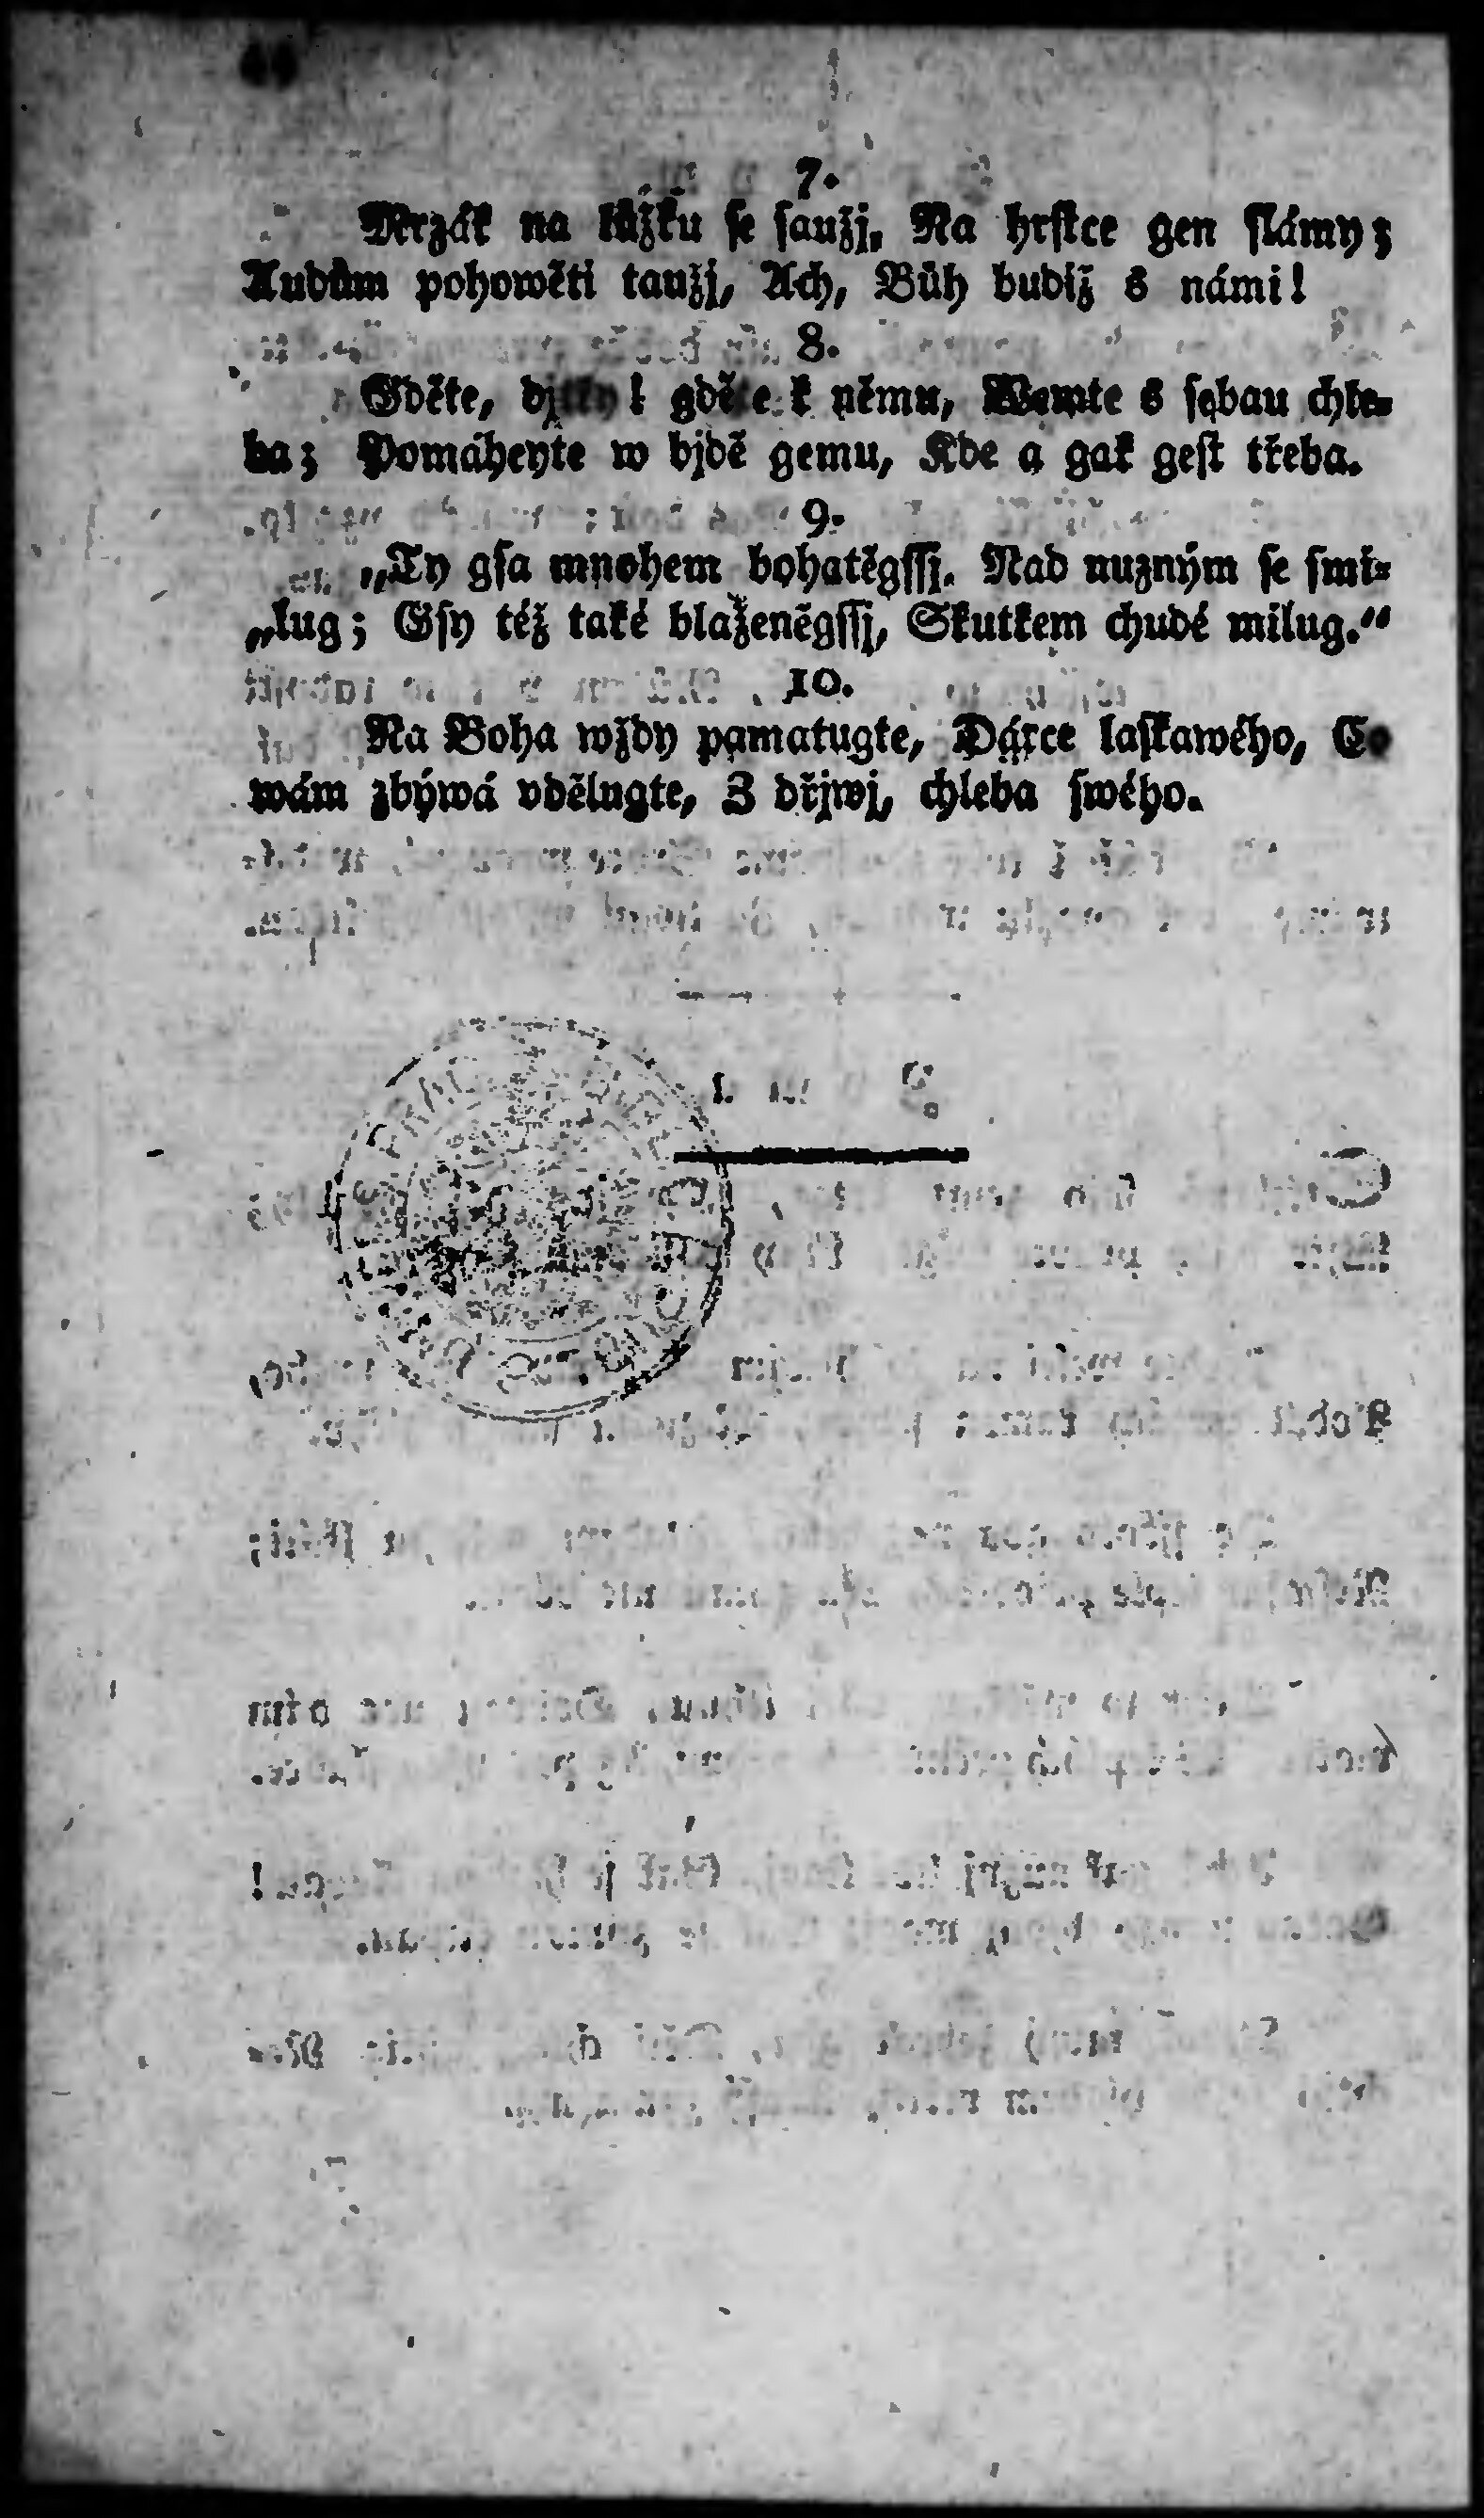 7.
Mrzák na lůžku se saužj, Na hrstce gen slámy;
Audům pohowěti taužj, Ach, Bůh budiž s námi!
8.
Gděte, djtky! gděte k němu, Wemte s sebau chle-
ba; Pomáheyte w bjdě gemu, Kde a gak gest třeba.
9.
„Ty gsa mnohem bohatěgssj. Nad nuzným se smi-
„lug; Gsy též také blaženěgssj, Skutkem chudé milug.“
10.
Na Boha wždy pamatugte, Dárce laskawého, Co
wám zbýwá vdělugte, Z dřjwj, chleba swého.